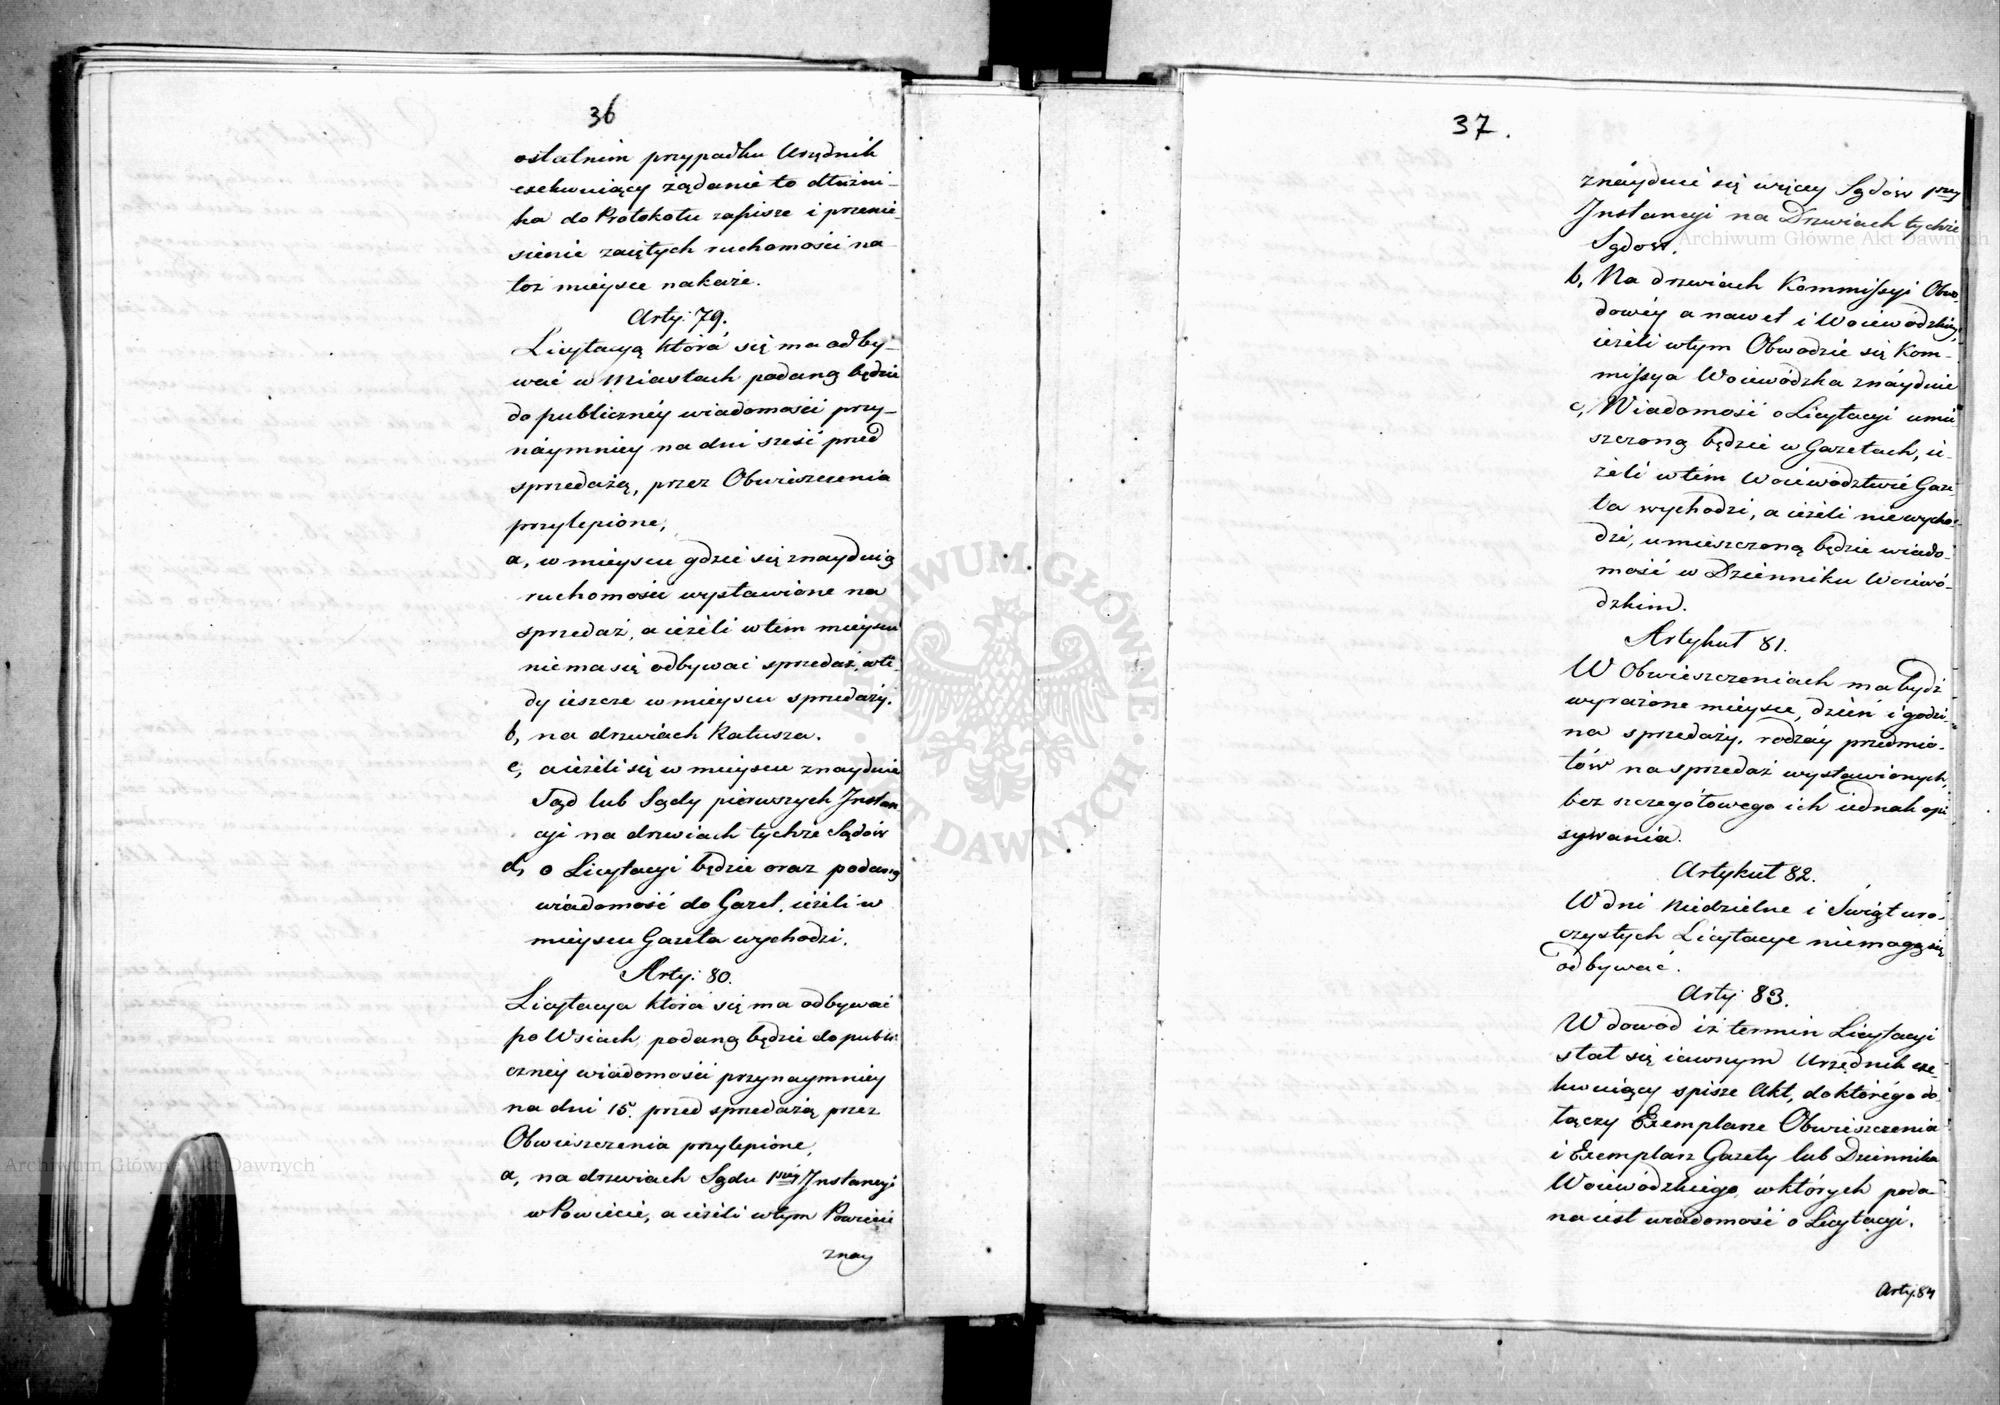 36
ostatnim przypadku Urzędnik
exekwuiący żądanie to dłużni-
ka do Protokołu zapisze i przenie-
sienie zaiętych ruchomości na
toż mieysce nakaże.
Arty: 79.
Licytacyą która się ma odby-
wać w Miastach podaną będzie
do publicznéy wiadomości przy-
náymniey na dni sześć przed
sprzedażą, przez Obwieszczenia
przylepione,
a, w mieyscu gdzie się znayduią
ruchomości wystawione na
sprzedaż, a ieżeli w tem mieyscu
niema się odbywać sprzedaż, wte-
dy ieszcze w mieyscu sprzedaży.
b, na drzwiach Ratusza.
c, a ieżeli się w mieyscu znayduie
Sąd lub Sądy pierwszych Instan
cyi na drzwiach tychże Sądów
d, o Licytacyi będzie oraz podaną
wiadomość do Gazet, ieżeli w
mieyscu Gazeta wychodzi.
Arty: 80.
Licytacya która się ma odbywać
po Wsiach, podaną będzie do publi
cznéy wiadomości przynaymniey
na dni 15. przed sprzedażą przez
Obwieszczenia przylepione,
a, na drzwiach Sądu 1wéy Instancyi
w Powiecie, a ieżeli w tym Powiecie
znay
37.
znáyduie się więcey Sądów 1wszy
Instancyi na Drzwiach tychże
Sądow.
b, Na drzwiach Kommissyi Obwo-
dowéy a nawet i Woiewódzkiéy,
ieżeli w tym Obwodzie się Kom-
missya Woiewódzka znáyduie
c, Wiadomość o Licytacyi umie
szczoną będzie w Gazetach, ie-
żeli w tém Woiewództwie Gaze
ta wychodzi, a ieżeli niewycho-
dzi, umieszczoną będzie wiado-
mość w Dzienniku Woiewó-
dzkim.
Artykuł 81.
W Obwieszczeniach ma bydź
wyrażone mieysce, dzień i godzi-
na sprzedaży, rodzáy przedmio-
tów na sprzedaż wystawionych,
bez szczegółowego ich iednak opi
sywania.
Artykuł 82.
W dni Niedzielne i Świąt uro-
czystych Licytacye niemogą się
odbywać.
Arty 83.
W dowód iż termin Licytacyi
stał się iawnym Urzędnik exe-
kwuiący spisze Akt, do którégo do-
łączy Exemplarz Obwieszczenia
i Exemplarz Gazety lub Dziennika
Woiewódzkiego, w których poda-
na iest wiadomość o Licytacyi.
Arty. 84
Archiwum Główne Akt Dawnych
Archiwum Główne Akt Dawnych
ARCHIWUM GŁÓWNE · AKT DAWNYCH ·